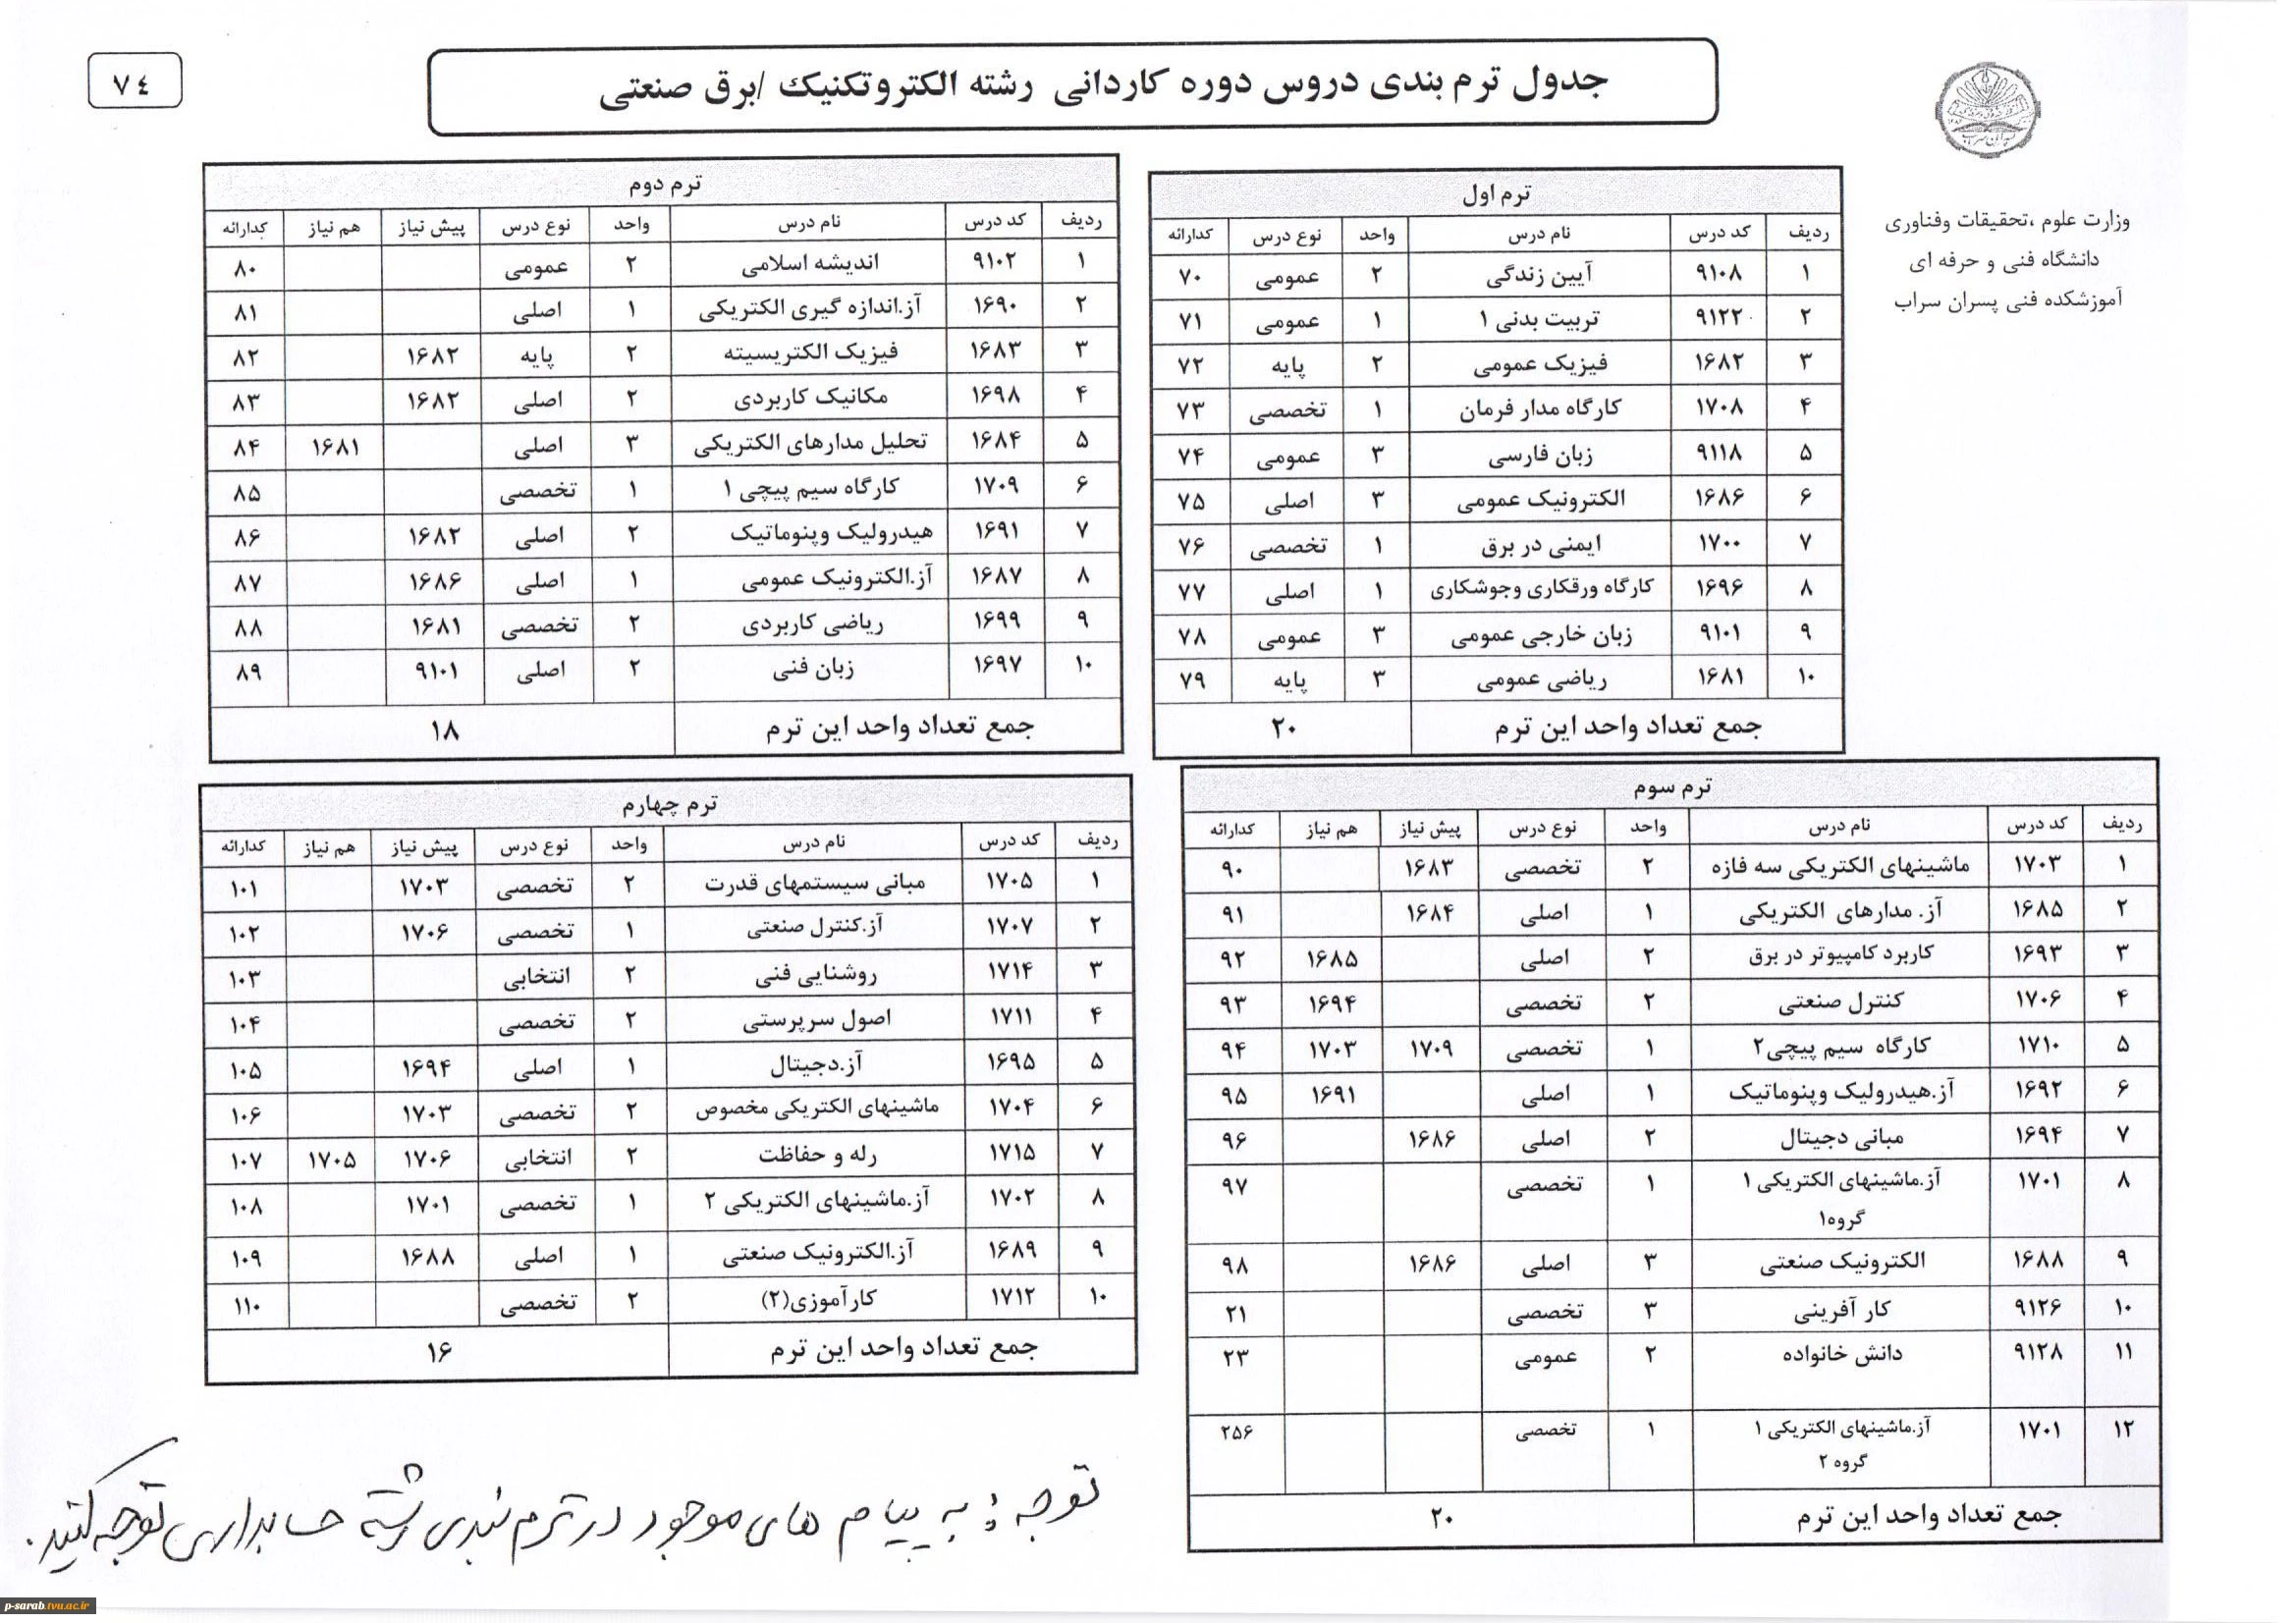 جدول ترم بندی دروس دوره کاردانی رشته الکتروتکنیک /برق صنعتی
۷۴
وزارت علوم ،تحقیقات وفناوری
دانشگاه فنی و حرفه ای
آموزشکده فنی پسران سراب
ترم اول
ردیف کد درس نام درس واحد نوع درس کدارائه
۱ ۹۱۰۸ آیین زندگی ۲ عمومی ۷۰
۲ ۹۱۲۲ تربیت بدنی ۱ ۱ عمومی ۷۱
۳ ۱۶۸۲ فیزیک عمومی ۲ پایه ۷۲
۴ ۱۷۰۸ کارگاه مدار فرمان ۱ تخصصی ۷۳
۵ ۹۱۱۸ زبان فارسی ۳ عمومی ۷۴
۶ ۱۶۸۶ الکترونیک عمومی ۳ اصلی ۷۵
۷ ۱۷۰۰ ایمنی در برق ۱ تخصصی ۷۶
۸ ۱۶۹۶ کارگاه ورقکاری وجوشکاری ۱ اصلی ۷۷
۹ ۹۱۰۱ زبان خارجی عمومی ۳ عمومی ۷۸
۱۰ ۱۶۸۱ ریاضی عمومی ۳ پایه ۷۹
جمع تعداد واحد این ترم ۲۰
ترم دوم
ردیف کد درس نام درس واحد نوع درس پیش نیاز هم نیاز کدارائه
۱ ۹۱۰۲ اندیشه اسلامی ۲ عمومی ۸۰
۲ ۱۶۹۰ آز.اندازه گیری الکتریکی ۱ اصلی ۸۱
۳ ۱۶۸۳ فیزیک الکتریسیته ۲ پایه ۱۶۸۲ ۸۲
۴ ۱۶۹۸ مکانیک کاربردی ۲ اصلی ۱۶۸۲ ۸۳
۵ ۱۶۸۴ تحلیل مدارهای الکتریکی ۳ اصلی ۱۶۸۱ ۸۴
۶ ۱۷۰۹ کارگاه سیم پیچی ۱ ۱ تخصصی ۸۵
۷ ۱۶۹۱ هیدرولیک وپنوماتیک ۲ اصلی ۱۶۸۲ ۸۶
۸ ۱۶۸۷ آز.الکترونیک عمومی ۱ اصلی ۱۶۸۶ ۸۷
۹ ۱۶۹۹ ریاضی کاربردی ۲ تخصصی ۱۶۸۱ ۸۸
۱۰ ۱۶۹۷ زبان فنی ۲ اصلی ۹۱۰۱ ۸۹
جمع تعداد واحد این ترم ۱۸
ترم سوم
ردیف کد درس نام درس واحد نوع درس پیش نیاز هم نیاز کدارائه
۱ ۱۷۰۳ ماشینهای الکتریکی سه فازه ۲ تخصصی ۱۶۸۳ ۹۰
۲ ۱۶۸۵ آز. مدارهای الکتریکی ۱ اصلی ۱۶۸۴ ۹۱
۳ ۱۶۹۳ کاربرد کامپیوتر در برق ۲ اصلی ۱۶۸۵ ۹۲
۴ ۱۷۰۶ کنترل صنعتی ۲ تخصصی ۱۶۹۴ ۹۳
۵ ۱۷۱۰ کارگاه سیم پیچی۲ ۱ تخصصی ۱۷۰۹ ۱۷۰۳ ۹۴
۶ ۱۶۹۲ آز.هیدرولیک وپنوماتیک ۱ اصلی ۱۶۹۱ ۹۵
۷ ۱۶۹۴ مبانی دجیتال ۲ اصلی ۱۶۸۶ ۹۶
۸ ۱۷۰۱ آز.ماشینهای الکتریکی ۱ ۱ تخصصی ۹۷
گروه۱
۹ ۱۶۸۸ الکترونیک صنعتی ۳ اصلی ۱۶۸۶ ۹۸
۱۰ ۹۱۲۶ کار آفرینی ۳ تخصصی ۲۱
۱۱ ۹۱۲۸ دانش خانواده ۲ عمومی ۲۳
۱۲ ۱۷۰۱ آز.ماشینهای الکتریکی ۱ ۱ تخصصی ۲۵۶
گروه ۲
جمع تعداد واحد این ترم ۲۰
ترم چهارم
ردیف کد درس نام درس واحد نوع درس پیش نیاز هم نیاز کدارائه
۱ ۱۷۰۵ مبانی سیستمهای قدرت ۲ تخصصی ۱۷۰۳ ۱۰۱
۲ ۱۷۰۷ آز.کنترل صنعتی ۱ تخصصی ۱۷۰۶ ۱۰۲
۳ ۱۷۱۴ روشنایی فنی ۲ انتخابی ۱۰۳
۴ ۱۷۱۱ اصول سرپرستی ۲ تخصصی ۱۰۴
۵ ۱۶۹۵ آز.دجیتال ۱ اصلی ۱۶۹۴ ۱۰۵
۶ ۱۷۰۴ ماشینهای الکتریکی مخصوص ۲ تخصصی ۱۷۰۳ ۱۰۶
۷ ۱۷۱۵ رله و حفاظت ۲ انتخابی ۱۷۰۶ ۱۷۰۵ ۱۰۷
۸ ۱۷۰۲ آز.ماشینهای الکتریکی ۲ ۱ تخصصی ۱۷۰۱ ۱۰۸
۹ ۱۶۸۹ آز.الکترونیک صنعتی ۱ اصلی ۱۶۸۸ ۱۰۹
۱۰ ۱۷۱۲ کارآموزی(۲) ۲ تخصصی ۱۱۰
جمع تعداد واحد این ترم ۱۶
توجه : به پیام های موجود در ترم بندی رشته حسابداری توجه کنید.
p-sarab.tvu.ac.ir